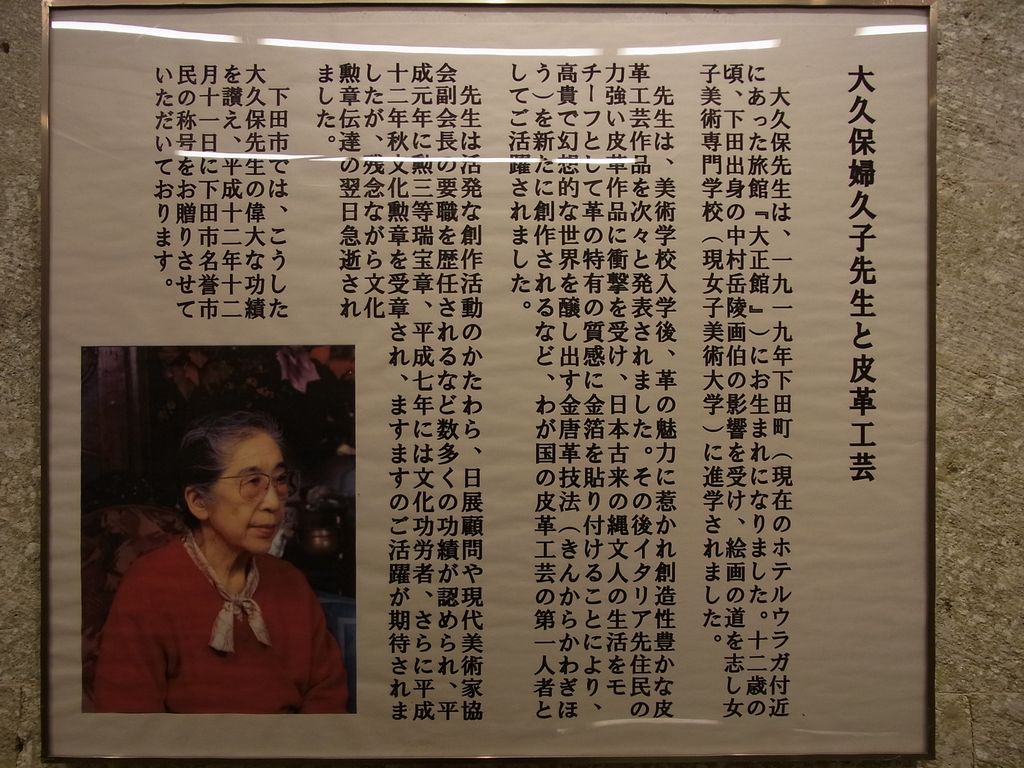 大久保婦久子先生と皮革工芸
大久保先生は、一九一九年下田町（現在のホテルウラガ付近
にあった旅館『大正館』）にお生まれになりました。十二歳の
頃、下田出身の中村岳陵画伯の影響を受け、絵画の道を志し女
子美術専門学校（現女子美術大学）に進学されました。
先生は、美術学校入学後、革の魅力に惹かれ創造性豊かな皮
革工芸作品を次々と発表されました。その後イタリア先住民の
力強い皮革作品に衝撃を受け、日本古来の縄文人の生活をモ
チーフとして革の特有の質感に金箔を貼り付けることにより、
高貴で幻想的な世界を醸し出す金唐革技法（きんからかわぎほ
う）を新たに創作されるなど、わが国の皮革工芸の第一人者と
してご活躍されました。
先生は活発な創作活動のかたわら、日展顧問や現代美術家協
会副会長の要職を歴任されるなど数多くの功績が認められ、平
成元年に勲三等瑞宝章、平成七年には文化功労者、さらに平成
十二年秋文化勲章を受章され、ますますのご活躍が期待されま
したが、残念ながら文化
勲章伝達の翌日急逝され
ました。
下田市では、こうした
大久保先生の偉大な功績
を讃え、平成十二年十二
月十一日に下田市名誉市
民の称号をお贈りさせて
いただいております。